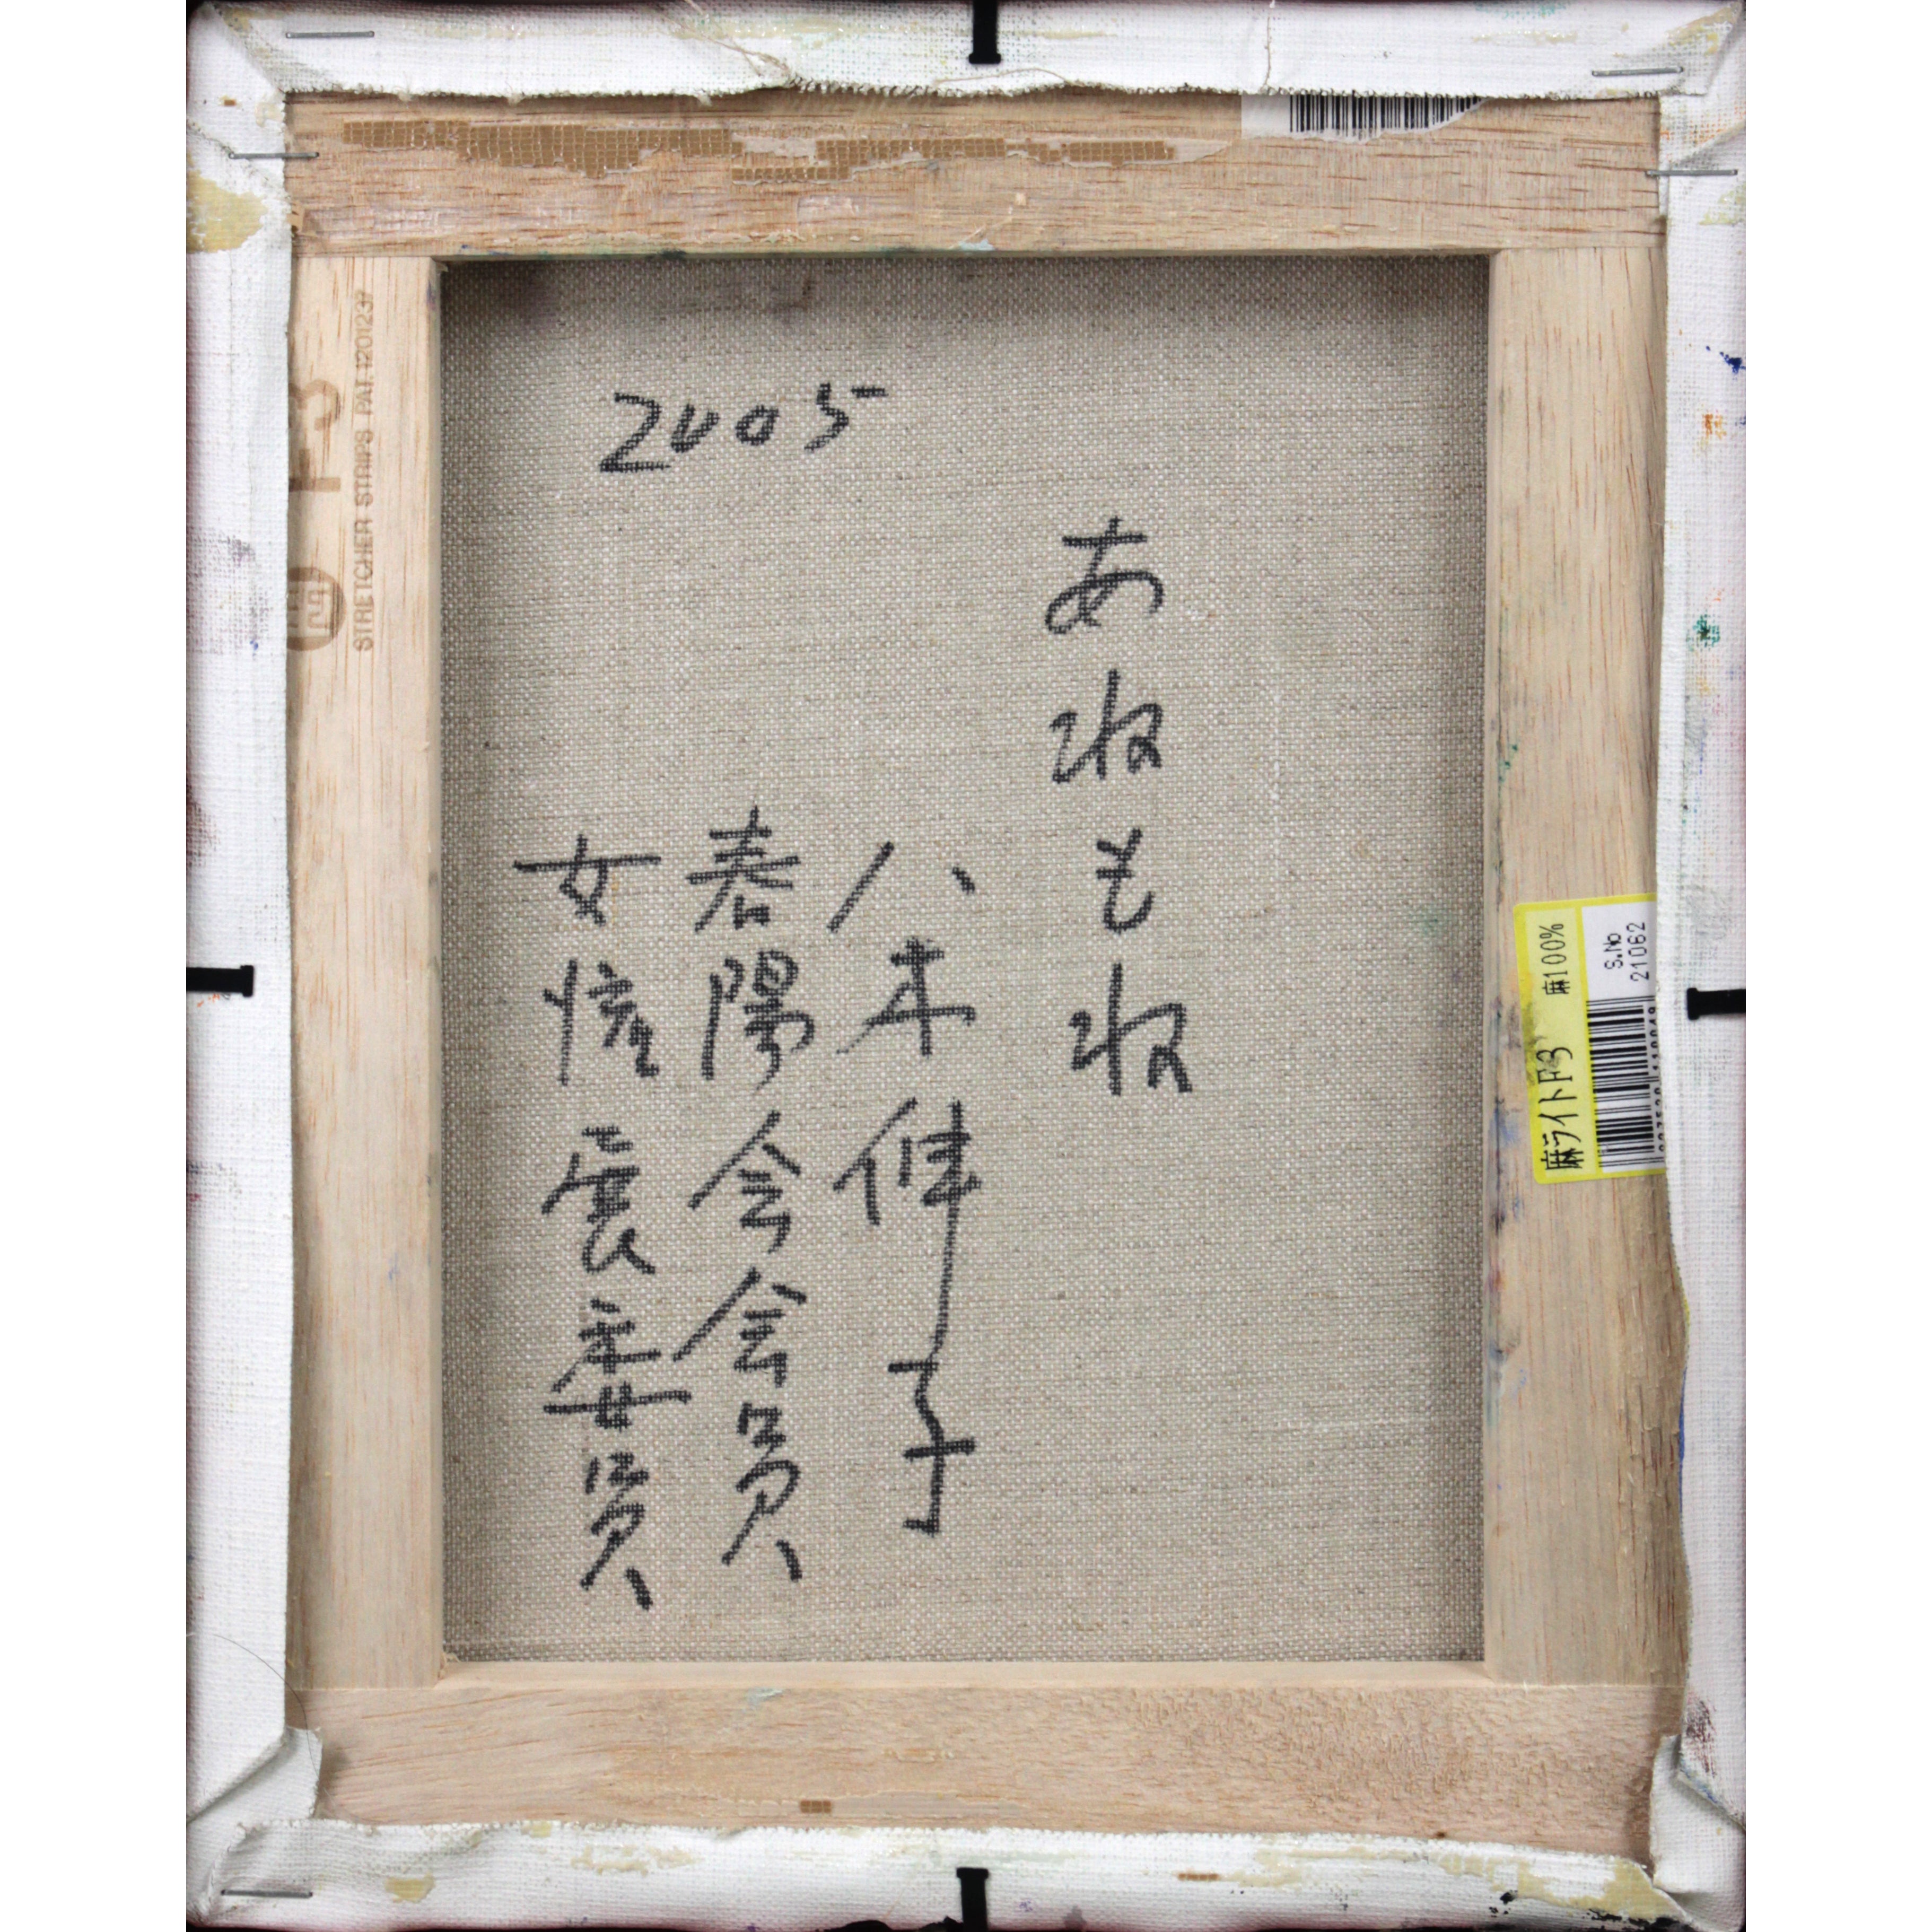 2005
あねもね
八木伸子
春陽会会員
女流展委員
F3
STRETCHER STRIPS PAT. 1201237
麻ライトF3 麻100%
S.No
21062